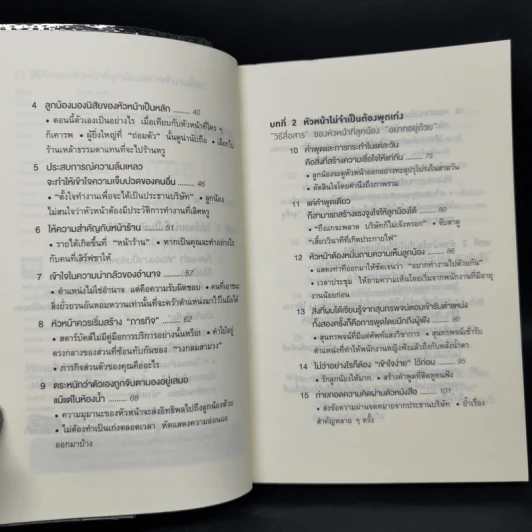 4 ลูกน้องมองนิสัยของหัวหน้าเป็นหลัก ......... 40
• ตอนนี้ตัวเองเป็นอย่างไร เมื่อเทียบกับหัวหน้าที่ใคร ๆ
ก็เคารพ • ผู้ยิ่งใหญ่ที่ "ถ่อมตัว" นั้นดูน่านับถือ • เลือกไป
ร้านเหล้าธรรมดาแทนที่จะไปร้านหรู
5 ประสบการณ์ความล้มเหลว
จะทำให้เข้าใจความเจ็บปวดของคนอื่น ......... 46
• "ตั้งใจทำงานเพื่อจะได้เป็นประธานบริษัท" • ลูกน้อง
ไม่สนใจว่าหัวหน้าต้องมีประวัติการทำงานที่เลิศหรู
6 ให้ความสำคัญกับหน้าร้าน ......... 51
• รายได้เกิดขึ้นที่ "หน้าร้าน" • หากเป็นคุณจะทำอย่างไร
กับคนที่เสิร์ฟชาให้
7 เข้าใจในความน่ากลัวของอำนาจ ......... 57
• ตำแหน่งไม่ใช่อำนาจ แต่คือความรับผิดชอบ • คนที่เอาชนะ
สิ่งยั่วยวนอันหอมหวานเท่านั้นที่จะคว้าตำแหน่งมาไว้ในมือได้
8 หัวหน้าควรเริ่มสร้าง "ภารกิจ" ......... 62
• สตาร์บัคส์ไม่มีคู่มือการบริการอย่างนั้นหรือ • คำไม้อยู่
ตรงกลางของส่วนที่ซ้อนทับกันของ "วงกลมสามวง"
• ภารกิจส่วนตัวของคุณคืออะไร
9 ตระหนักว่าตัวเองถูกจับตามองอยู่เสมอ
แม้แต่ในห้องน้ำ ......... 68
• ความมุมานะของหัวหน้าจะส่งอิทธิพลไปถึงลูกน้องด้วย
• ไม่ต้องทำเป็นเก่งตลอดเวลา หัดแสดงความอ่อนแอ
ออกมาบ้าง
บทที่ 2 หัวหน้าไม่จำเป็นต้องพูดเก่ง
"วิธีสื่อสาร" ของหัวหน้าที่ลูกน้อง "อยากอยู่ด้วย"
10 คำพูดและการกระทำในแต่ละวัน
คือสิ่งที่สร้างความเชื่อใจให้แก่กัน ......... 75
• ลูกน้องจะดูหัวหน้าออกอย่างทะลุปรุโปร่งในสามวัน
• ตัดสินใจโดยคำนึงถึงภาพรวม
11 แค่คำพูดเดียว
ก็สามารถสร้างแรงจูงใจให้ลูกน้องได้ ......... 80
• "ถึงแกจะพลาด บริษัทก็ไม่เจ๊งหรอก" • จับตาดู
"เสี้ยววินาทีที่เกิดประกายไฟ"
12 หัวหน้าต้องหมั่นถามความเห็นลูกน้อง ......... 86
• แสดงท่าทีออกมาให้ชัดเจนว่า "อยากทำงานไปด้วยกัน"
• เวลาประชุม ให้ถามความเห็นโดยเริ่มจากพนักงานที่มีอายุ
งานน้อยก่อน
13 สิ่งที่ผมได้เรียนรู้จากสุนทรพจน์ตอนเข้ารับตำแหน่ง
ทั้งสองครั้งก็คือการพูดโดยนึกถึงผู้ฟัง ......... 90
• สุนทรพจน์ที่มีแต่ศัพท์และวิชาการ • สุนทรพจน์เข้ารับ
ตำแหน่งที่ทำให้พนักงานหญิงฟังแล้วถึงกับหลั่งน้ำตา
14 ไม่ว่าอย่างไรก็ต้อง "เข้าใจง่าย" ไว้ก่อน ......... 95
• รักลูกน้องให้มาก • สร้างคำพูดที่ติดหูคนฟัง
15 ถ่ายทอดความคิดผ่านตัวหนังสือ ......... 101
• ส่งข้อความผ่านจดหมายจากประธานบริษัท • ย้ำเรื่อง
สำคัญหลาย ๆ ครั้ง